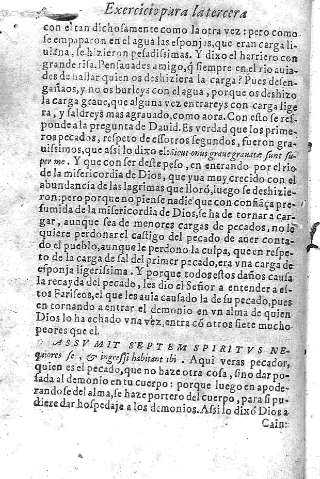 Exercicio para la tercera
con el tan dichosamente como la otra vez: pero como
se empaparon en el agua las esponjas, que eran carga li-
uiana, se hizieron pesadissimas. Y dixo el harriero con
grande risa. Pensauades amigo, q̃ siempre en el rio auia-
des de hallar quien os deshiziera la carga? Pues desen-
gañaos, y no os burleys con el agua, porque os deshizo
la carga graue, que alguna vez entrareys con carga lige
ra, y saldreys mas agrauado, como aora. Con esto se res-
ponde a la pregunta de Dauid. Es verdad que los prime-
ros pecados, respeto de essotros segundos, fueron gra-
uissimos, que assi lo dixo el: Sicut onus graue grauatæ sunt su-
per me. Y que con ser deste peso, en entrando por el rio
de la misericordia de Dios, que yua muy crecido con el
abundancia de las lagrimas que lloró, luego se deshizie-
ron: pero porque no piense nadie que con confiãça per-
fumida de la misericordia de Dios, se ha de tornar a car-
gar, aunque sea de menores cargas de pecados, no le
quiere perdonar el castigo del pecado de auer conta-
do el pueblo, aunque le perdono la culpa, que en respe-
to de la carga de sal del primer pecado, era vna carga de
esponja ligerissima. Y porque todos estos daños causa
la recayda del pecado, les dio el Señor a entender a es-
tos Fariseos, el que les auia causado la de su pecado, pues
en tornando a entrar el demonio en vn alma de quien
Dios lo ha echado vna vez, entra cõ otros siete mucho
peores que el.
ASSVMIT SEPTEM SPIRITVS NE-
quiores se, & ingressi habitant ibi. Aqui veras pecador,
quien es el pecado, que no haze otra cosa, sino dar po-
sada al demonio en tu cuerpo: porque luego en apode-
randose del alma, se haze portero del cuerpo, para si pu-
diere dar hospedaje a los demonios. Assi lo dixo Dios a
Cain: